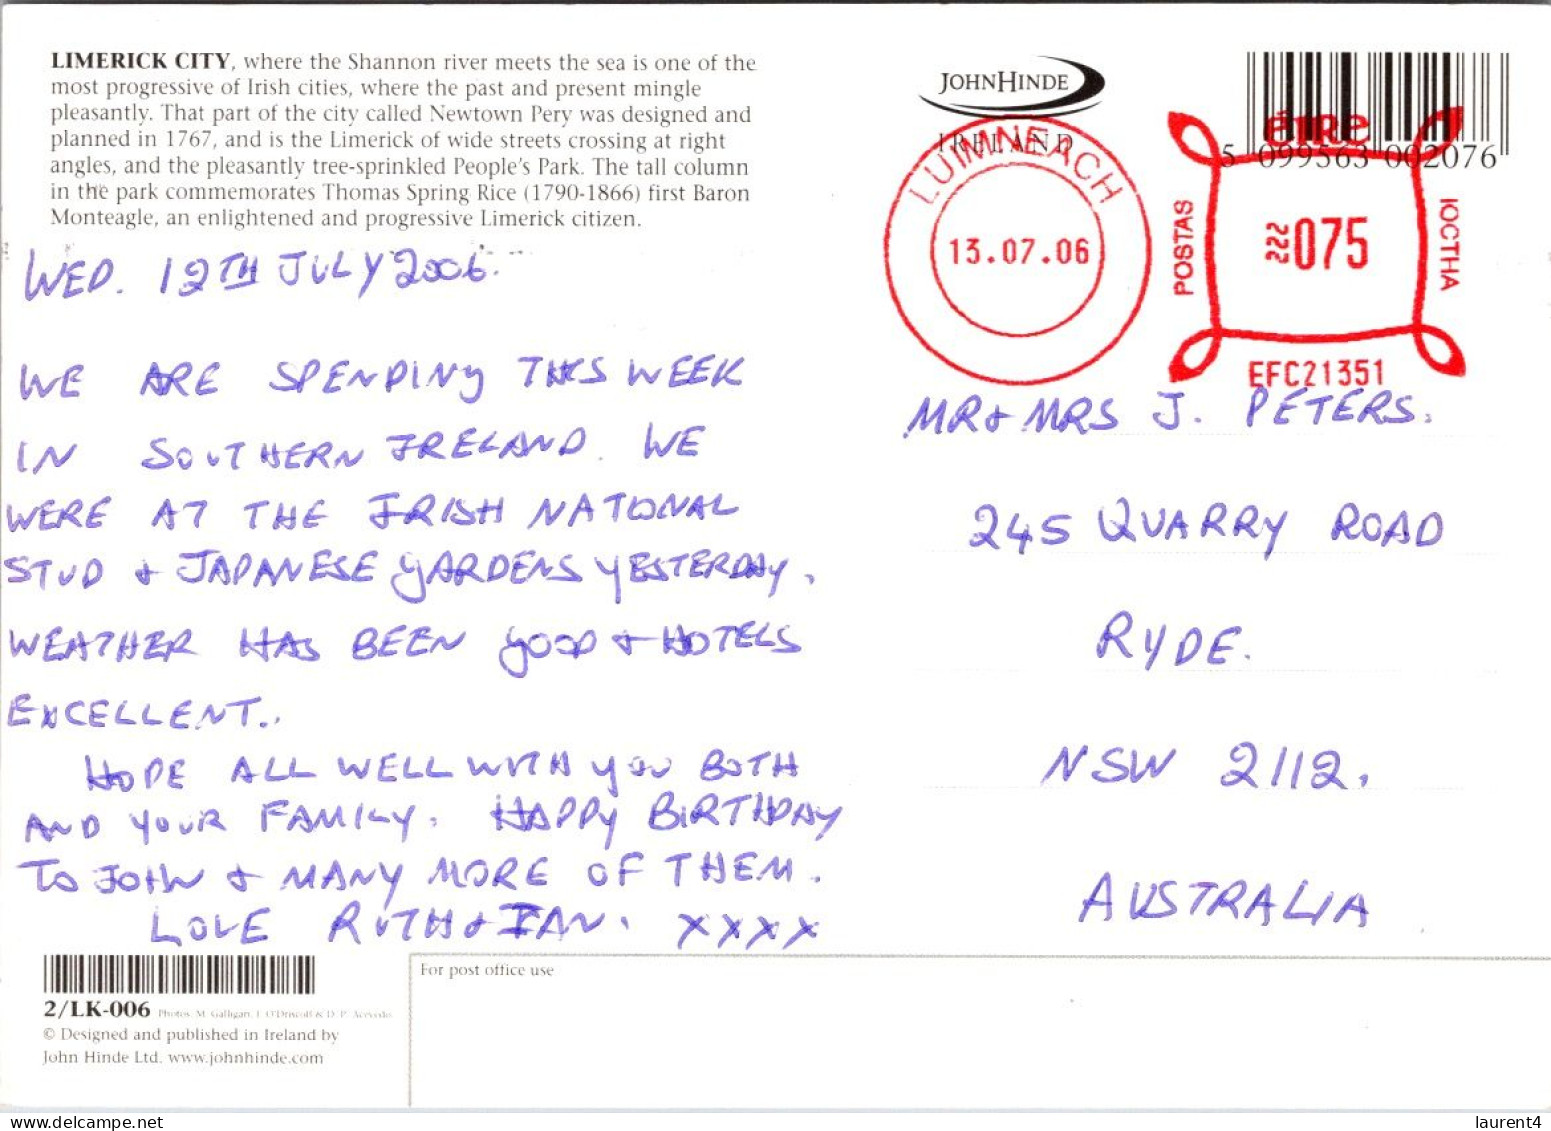 LIMERICK CITY, where the Shannon river meets the sea is one of the
most progressive of Irish cities, where the past and present mingle
pleasantly. That part of the city called Newtown Pery was designed and
planned in 1767, and is the Limerick of wide streets crossing at right
angles, and the pleasantly tree-sprinkled People's Park. The tall column
in the park commemorates Thomas Spring Rice (1790-1866) first Baron
Monteagle, an enlightened and progressive Limerick citizen.
JOHNHINDE
IRELAND
LUIMNEACH
13.07.06
5 099563 002076
éıRe
POSTAS
075
IOCTHA
EFC21351
WED. 12TH JULY 2006.
WE ARE SPENDING THIS WEEK
IN SOUTHERN IRELAND. WE
WERE AT THE IRISH NATIONAL
STUD & JAPANESE GARDENS YESTERDAY.
WEATHER HAS BEEN GOOD & HOTELS
EXCELLENT..
HOPE ALL WELL WITH YOU BOTH
AND YOUR FAMILY. HAPPY BIRTHDAY
TO JOHN & MANY MORE OF THEM.
LOVE RUTH & IAN. XXXX
MR & MRS J. PETERS.
245 QUARRY ROAD
RYDE.
NSW 2112.
AUSTRALIA
2/LK-006 Photos: M. Galligan, L. O'Driscoll & D. P. Acevedo.
© Designed and published in Ireland by
John Hinde Ltd. www.johnhinde.com
For post office use
laurent4